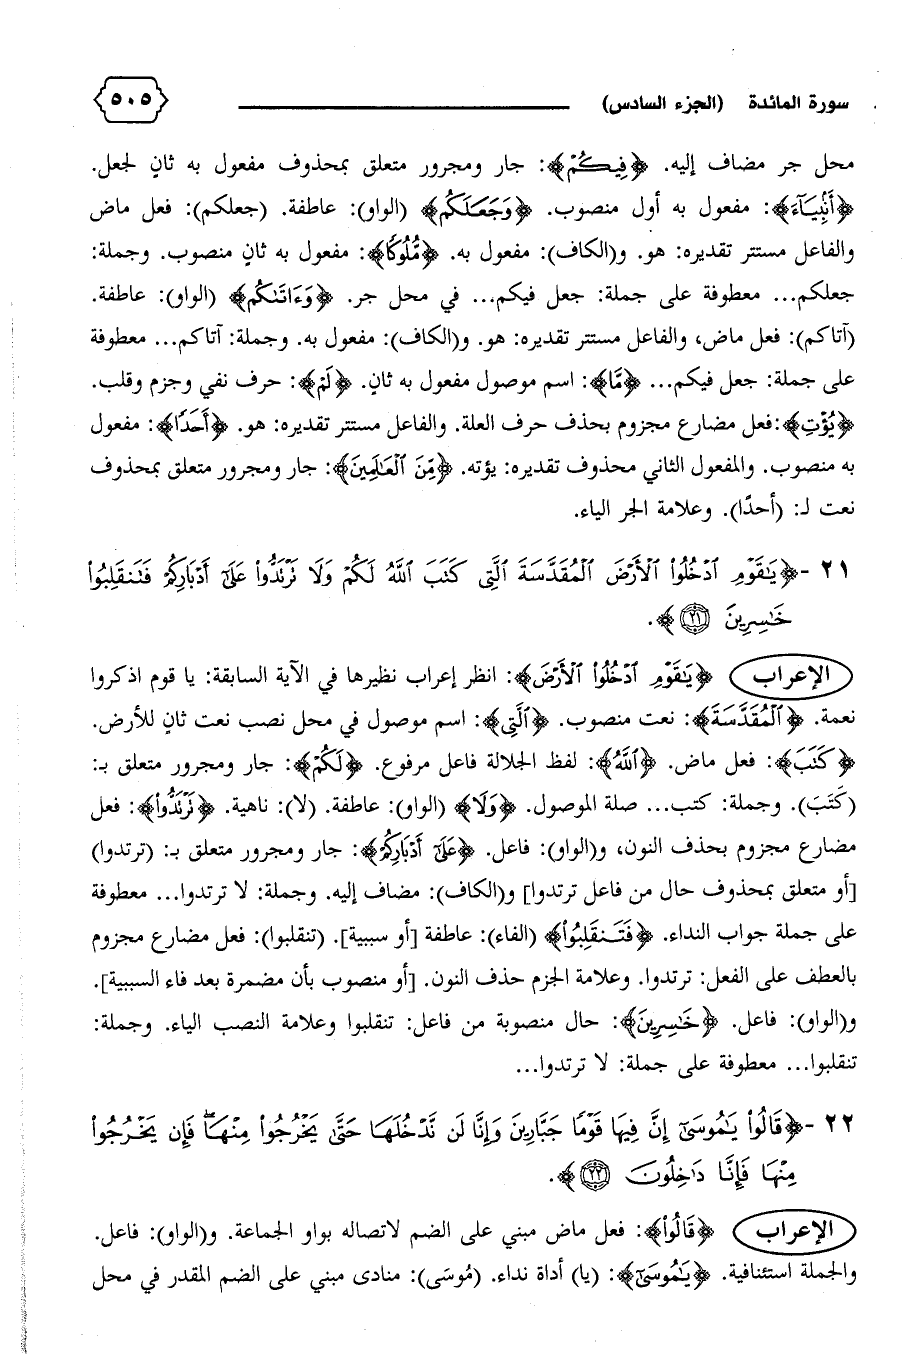 سورة المائدة (الجزء السادس) ٥٠٥
محل جر مضاف إليه. ﴿فِيكُمْ﴾: جار ومجرور متعلق بمحذوف مفعول به ثانٍ لجعل.
﴿أَنۢبِيَآءَ﴾: مفعول به أول منصوب. ﴿وَجَعَلَكُم﴾ (الواو): عاطفة. (جعلكم): فعل ماض
والفاعل مستتر تقديره: هو. و(الكاف): مفعول به. ﴿مُّلُوكًا﴾: مفعول به ثانٍ منصوب. وجملة:
جعلكم... معطوفة على جملة: جعل فيكم... في محل جر. ﴿وَءَاتَىٰكُم﴾ (الواو): عاطفة.
(آتاكم): فعل ماض، والفاعل مستتر تقديره: هو. و(الكاف): مفعول به. وجملة: آتاكم... معطوفة
على جملة: جعل فيكم... ﴿مَّا﴾: اسم موصول مفعول به ثانٍ. ﴿لَمْ﴾: حرف نفي وجزم وقلب.
﴿يُؤْتِ﴾: فعل مضارع مجزوم بحذف حرف العلة. والفاعل مستتر تقديره: هو. ﴿أَحَدًا﴾: مفعول
به منصوب. والمفعول الثاني محذوف تقديره: يؤته. ﴿مِّنَ ٱلْعَٰلَمِينَ﴾: جار ومجرور متعلق بمحذوف
نعت لـ: (أحدًا). وعلامة الجر الياء.
٢١ -﴿يَٰقَوْمِ ٱدْخُلُوا۟ ٱلْأَرْضَ ٱلْمُقَدَّسَةَ ٱلَّتِى كَتَبَ ٱللَّهُ لَكُمْ وَلَا تَرْتَدُّوا۟ عَلَىٰٓ أَدْبَارِكُمْ فَتَنقَلِبُوا۟
خَٰسِرِينَ ۝٢١﴾.
الإعراب ﴿يَٰقَوْمِ ٱدْخُلُوا۟ ٱلْأَرْضَ﴾: انظر إعراب نظيرها في الآية السابقة: يا قوم اذكروا
نعمة. ﴿ٱلْمُقَدَّسَةَ﴾: نعت منصوب. ﴿ٱلَّتِى﴾: اسم موصول في محل نصب نعت ثان للأرض.
﴿كَتَبَ﴾: فعل ماض. ﴿ٱللَّهُ﴾: لفظ الجلالة فاعل مرفوع. ﴿لَكُمْ﴾: جار ومجرور متعلق بـ:
(كَتَبَ). وجملة: كتب... صلة الموصول. ﴿وَلَا﴾ (الواو): عاطفة. (لا): ناهية. ﴿تَرْتَدُّوا۟﴾: فعل
مضارع مجزوم بحذف النون، و(الواو): فاعل. ﴿عَلَىٰٓ أَدْبَارِكُمْ﴾: جار ومجرور متعلق بـ: (ترتدوا)
[أو متعلق بمحذوف حال من فاعل ترتدوا] و(الكاف): مضاف إليه. وجملة: لا ترتدوا... معطوفة
على جملة جواب النداء. ﴿فَتَنقَلِبُوا۟﴾ (الفاء): عاطفة [أو سببية]. (تنقلبوا): فعل مضارع مجزوم
بالعطف على الفعل: ترتدوا. وعلامة الجزم حذف النون. [أو منصوب بأن مضمرة بعد فاء السببية].
و(الواو): فاعل. ﴿خَٰسِرِينَ﴾: حال منصوبة من فاعل: تنقلبوا وعلامة النصب الياء. وجملة:
تنقلبوا... معطوفة على جملة: لا ترتدوا...
٢٢ -﴿قَالُوا۟ يَٰمُوسَىٰٓ إِنَّ فِيهَا قَوْمًا جَبَّارِينَ وَإِنَّا لَن نَّدْخُلَهَا حَتَّىٰ يَخْرُجُوا۟ مِنْهَاۖ فَإِن يَخْرُجُوا۟
مِنْهَا فَإِنَّا دَٰخِلُونَ ۝٢٢﴾.
الإعراب ﴿قَالُوا۟﴾: فعل ماض مبني على الضم لاتصاله بواو الجماعة. و(الواو): فاعل.
والجملة استئنافية. ﴿يَٰمُوسَىٰٓ﴾: (يا) أداة نداء. (مُوسَى): منادى مبني على الضم المقدر في محل